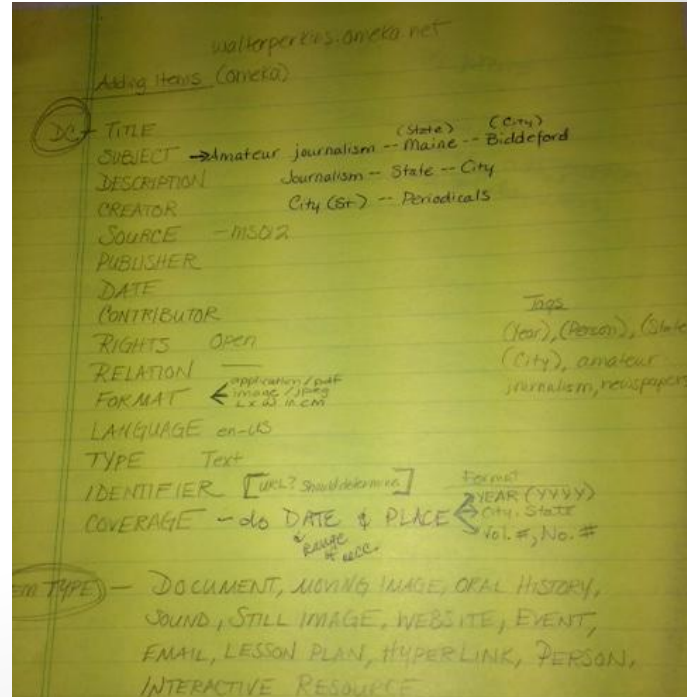 walterperkins.omeka.net
Adding Items (omeka)
DC - TITLE
(State) (City)
SUBJECT → Amateur journalism -- Maine -- Biddeford
DESCRIPTION Journalism -- State -- City
CREATOR City (St) -- Periodicals
SOURCE - MS012
PUBLISHER
DATE
CONTRIBUTOR
RIGHTS Open
RELATION
FORMAT application/pdf
image/jpeg
L x W in cm
LANGUAGE en-US
TYPE Text
IDENTIFIER [URL? Should determine]
COVERAGE - do DATE & PLACE
range
Format
YEAR (YYYY)
City, State
Vol. #, No. #
Tags
(Year), (Person), (State
(City), amateur
journalism, newspapers
em TYPE) - DOCUMENT, MOVING IMAGE, ORAL HISTORY,
SOUND, STILL IMAGE, WEBSITE, EVENT,
EMAIL, LESSON PLAN, HYPERLINK, PERSON,
INTERACTIVE RESOURCE